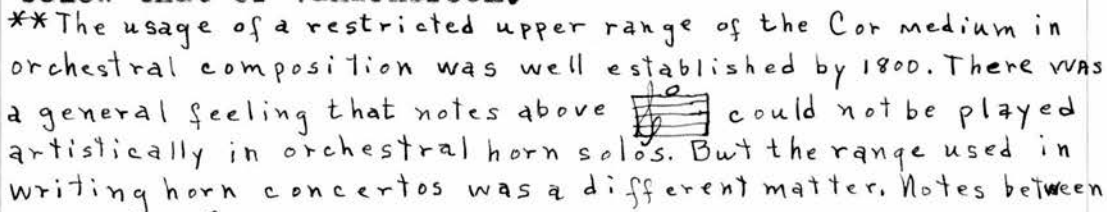 ** The usage of a restricted upper range of the Cor medium in
orchestral composition was well established by 1800. There was
a general feeling that notes above could not be played
artistically in orchestral horn solos. But the range used in
writing horn concertos was a different matter. Notes between